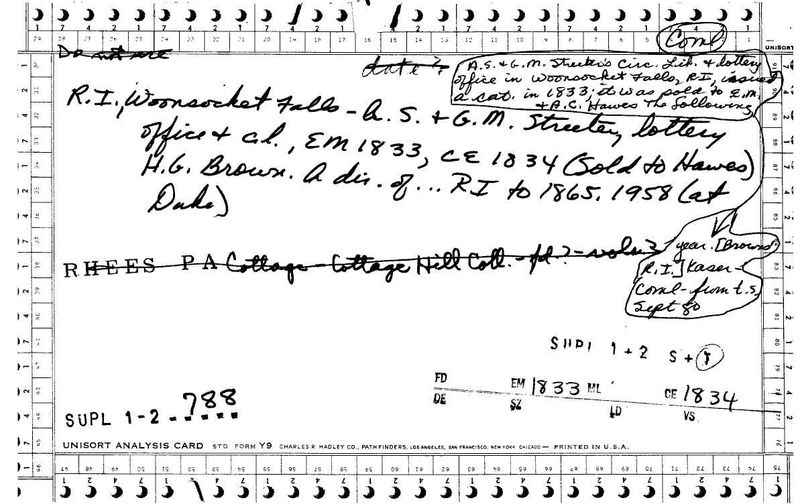 Coml
UNISORT
Do not use
date?
A.S. & G.M. Streeter's Circ. Lib. & lottery
office in Woonsocket Falls, R.I., issued
a cat. in 1833; it was sold to E.M.
& A.C. Hawes The following
R.I., Woonsocket Falls - A. S. & G. M. Streeter, lottery
office & cl., EM 1833, CE 1834 (Sold to Hawes)
H.G. Brown. A dir. of... RI to 1865. 1958 (at
Duke)
year. [Brown's
R.I.] Kaser-
Coml - from t.s.
Sept 80
RHEES PA Cottage - Cottage Hill Coll. - fd? - vols?
SUPL 1+2 S+
FD EM 1833 ML CE 1834
DE SZ LD VS
SUPL 1-2 788
UNISORT ANALYSIS CARD STD FORM Y9 CHARLES R HADLEY CO., PATHFINDERS, LOS ANGELES, SAN FRANCISCO, NEW YORK CHICAGO — PRINTED IN U.S.A.